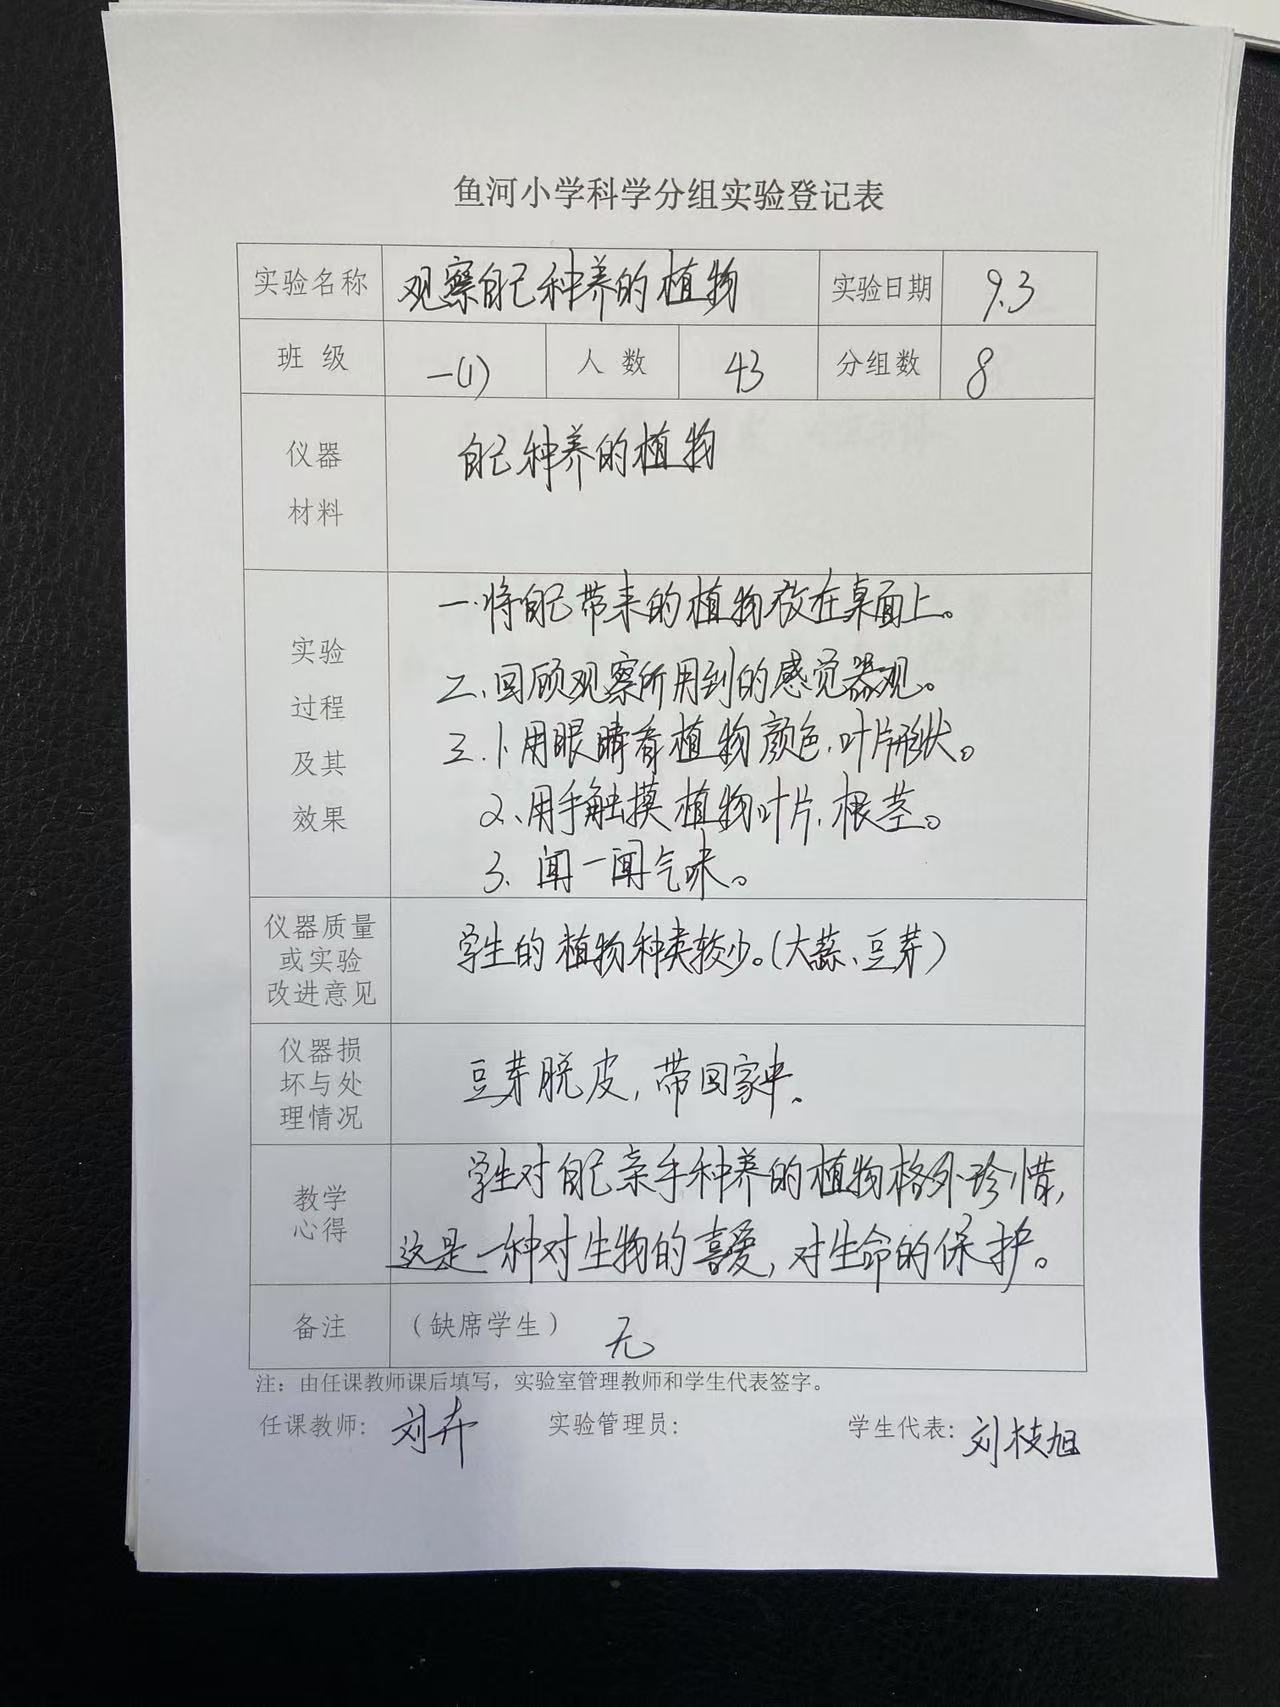 鱼河小学科学分组实验登记表
实验名称 观察自己种养的植物 实验日期 9.3
班 级 一(1) 人 数 43 分组数 8
仪器
材料
自己种养的植物
实验
过程
及其
效果
一.将自己带来的植物放在桌面上。
二、回顾观察所用到的感觉器观。
三.1.用眼睛看植物颜色.叶片形状。
2、用手触摸植物叶片.根茎。
3、闻一闻气味。
仪器质量
或实验
改进意见
学生的植物种类较少。(大蒜、豆芽)
仪器损
坏与处
理情况
豆芽脱皮,带回家中。
教学
心得
学生对自己亲手种养的植物格外珍惜,
这是一种对生物的喜爱,对生命的保护。
备注 (缺席学生) 无
注:由任课教师课后填写,实验室管理教师和学生代表签字。
任课教师: 刘卉 实验管理员: 学生代表: 刘枝旭